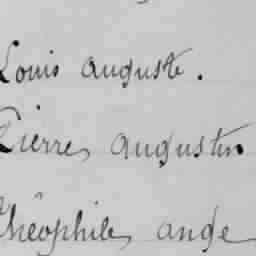 Louis auguste.
Pierre, augustin
Théophile, ange